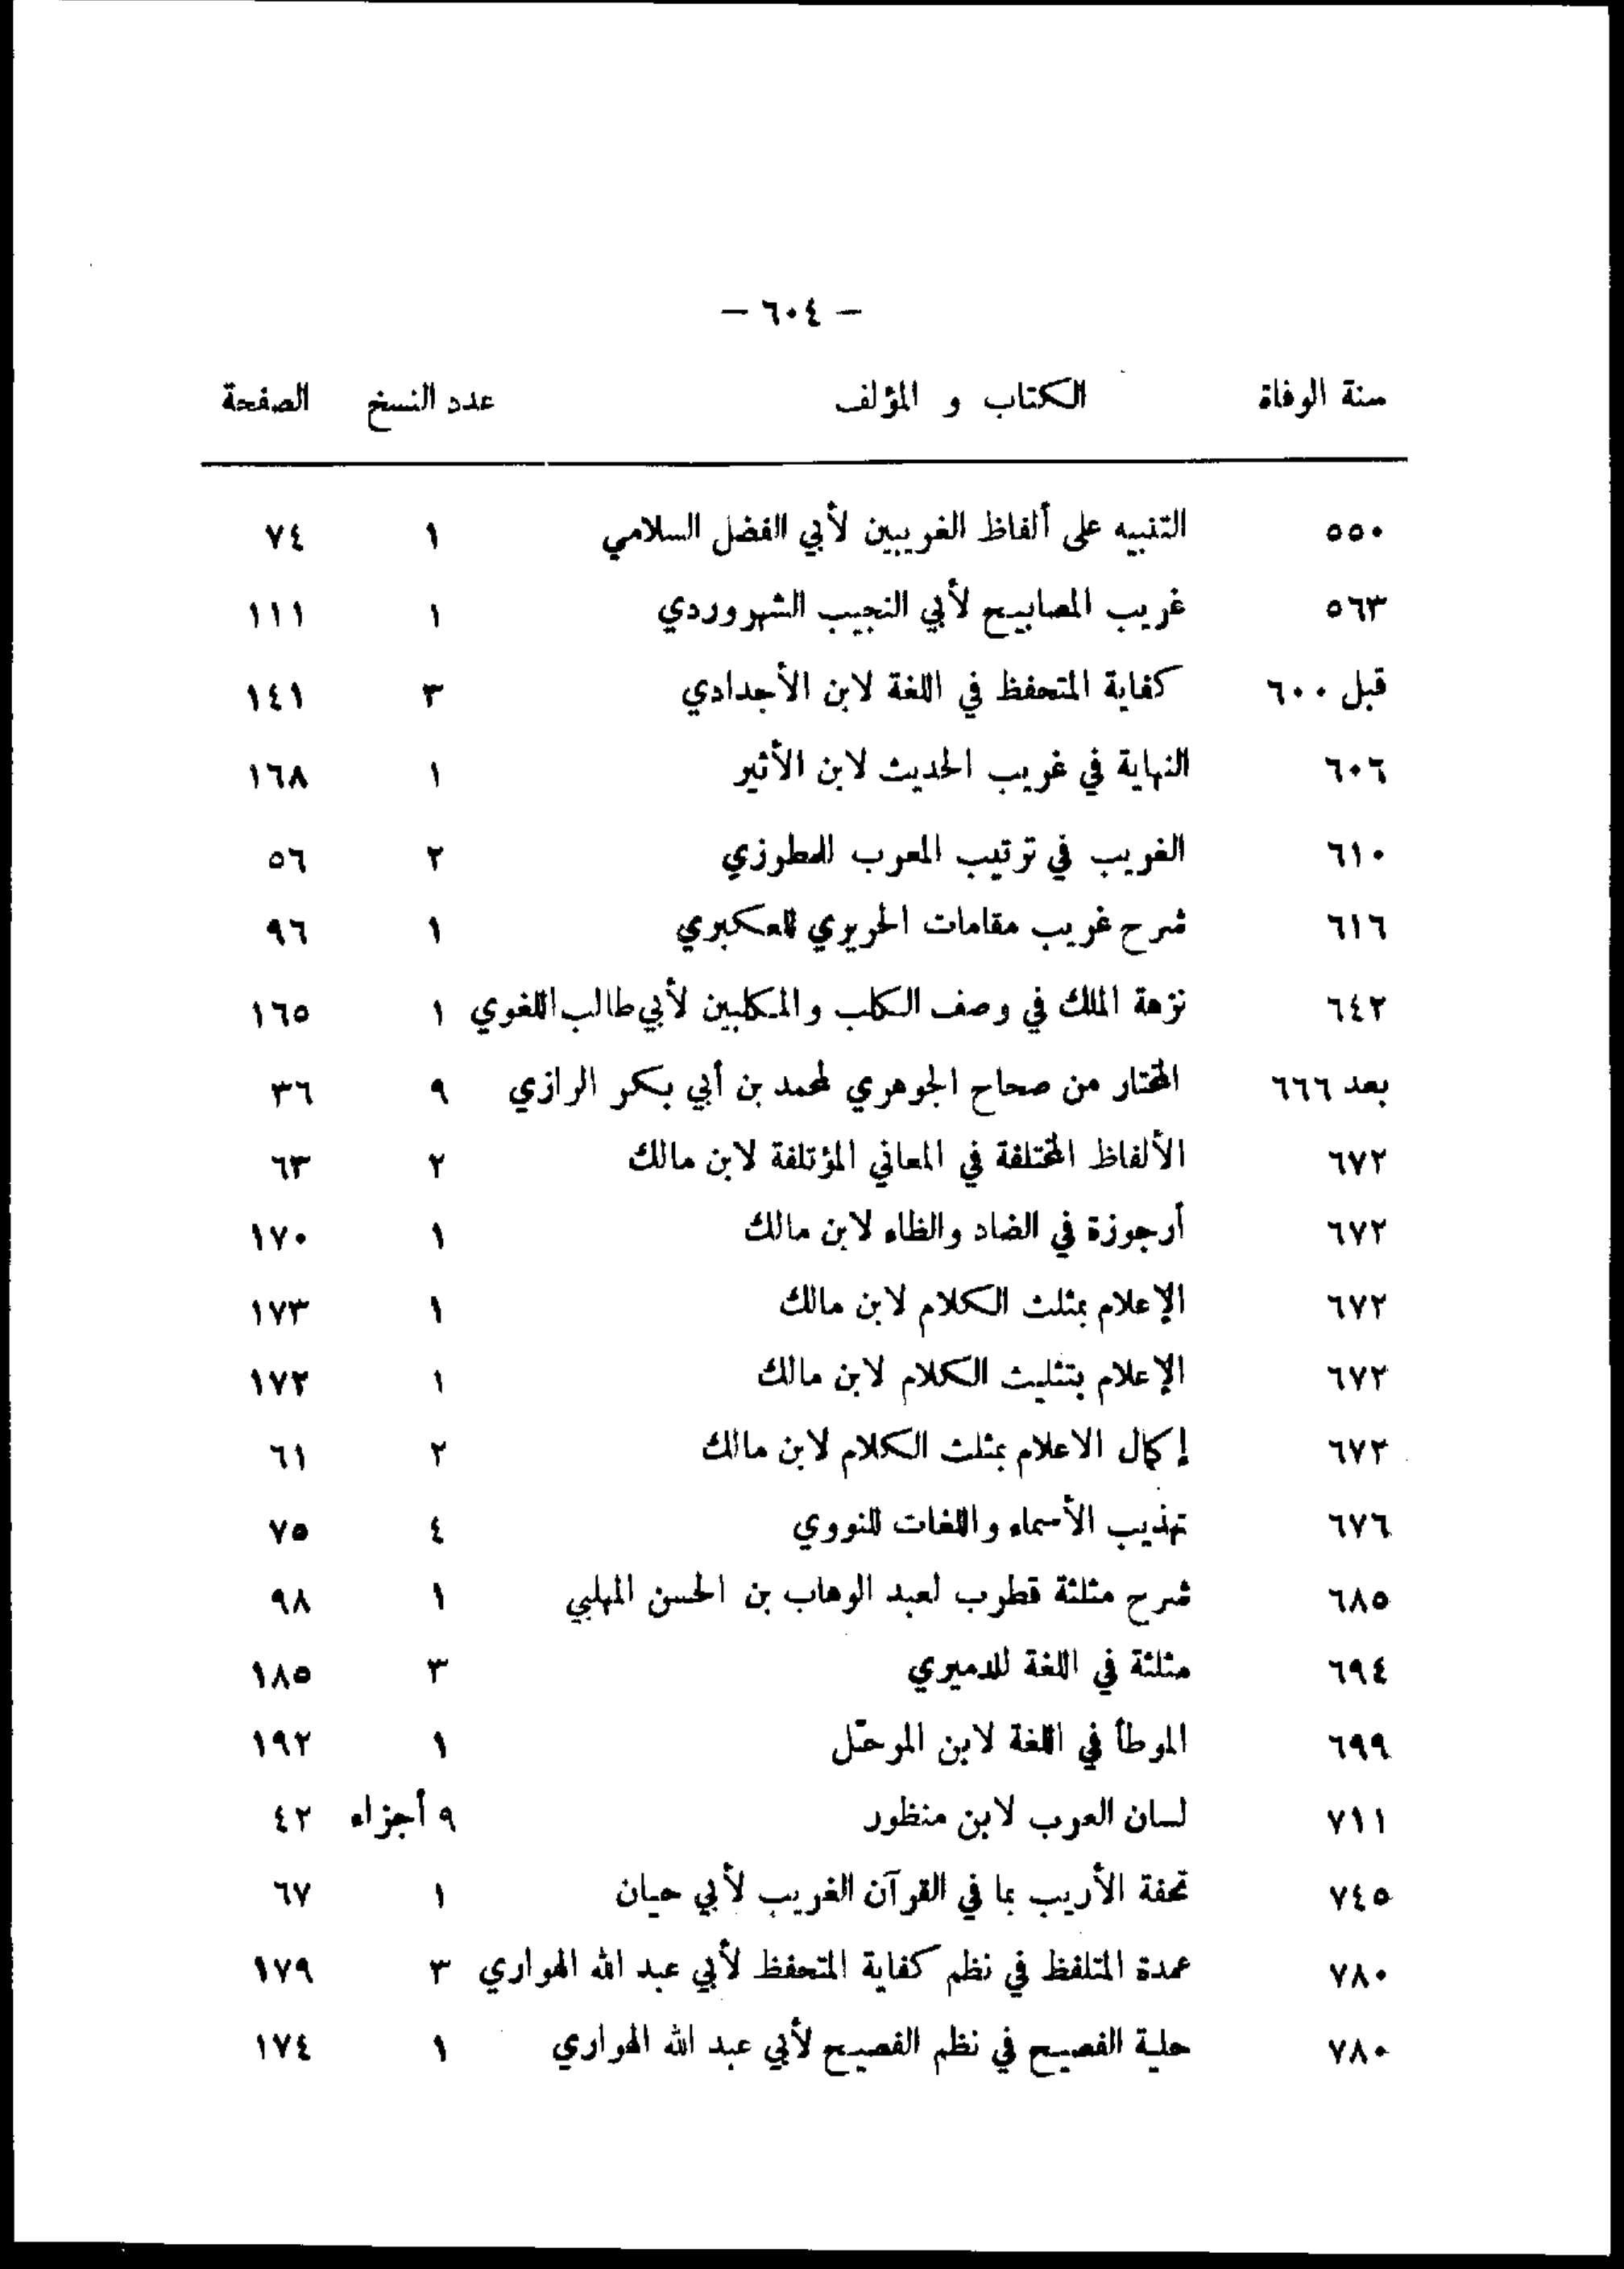 — ٦٠٤ —
سنة الوفاة الكتاب و المؤلف عدد النسخ الصفحة
٥٥٠ التنبيه على ألفاظ الغريبين لأبي الفضل السلامي ١ ٧٤
٥٦٣ غريب المصابيح لأبي النجيب الشهروردي ١ ١١١
قبل ٦٠٠ كفاية المتحفظ في اللغة لابن الأجدادي ٣ ١٤١
٦٠٦ النهاية في غريب الحديث لابن الأثير ١ ١٦٨
٦١٠ الغريب في ترتيب المعرب للمطرزي ٢ ٥٦
٦١٦ شرح غريب مقامات الحريري للعكبري ١ ٩٦
٦٤٢ نزهة الملك في وصف الكلب والمكلبين لأبي طالب اللغوي ١ ١٦٥
بعد ٦٦٦ المختار من صحاح الجوهري لمحمد بن أبي بكر الرازي ٩ ٣٦
٦٧٢ الألفاظ المختلفة في المعاني المؤتلفة لابن مالك ٢ ٦٣
٦٧٢ أرجوزة في الضاد والظاء لابن مالك ١ ١٧٠
٦٧٢ الإعلام بمثلث الكلام لابن مالك ١ ١٧٣
٦٧٢ الإعلام بتثليث الكلام لابن مالك ١ ١٧٢
٦٧٢ إكمال الاعلام بمثلث الكلام لابن مالك ٢ ٦١
٦٧٦ تهذيب الأسماء واللغات للنووي ٤ ٧٥
٦٨٥ شرح مثلثة قطرب لعبد الوهاب بن الحسن المهلبي ١ ٩٨
٦٩٤ مثلثة في اللغة للدميري ٣ ١٨٥
٦٩٩ الموطأ في اللغة لابن المرحّل ١ ١٩٢
٧١١ لسان العرب لابن منظور ٩ أجزاء ٤٢
٧٤٥ تحفة الأريب بما في القرآن الغريب لأبي حيان ١ ٦٧
٧٨٠ عمدة المتلفظ في نظم كفاية المتحفظ لأبي عبد الله الهواري ٣ ١٧٩
٧٨٠ حلية الفصيح في نظم الفصيح لأبي عبد الله الهواري ١ ١٧٤